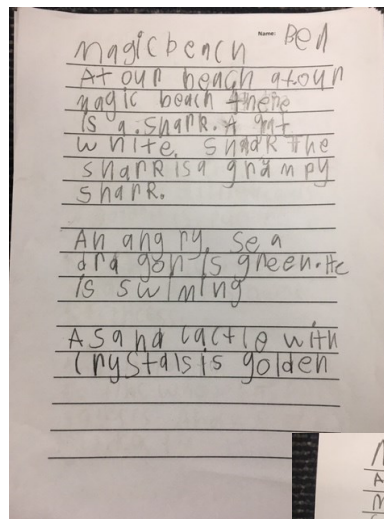 Name: Ben
magic beach
At our beach at our
magic beach there
is a. shark. A grat
white. shark the
shark is a grumpy
shark.
An angry. sea
dragon is green. He
is swiming
A sand castle with
crystals is golden